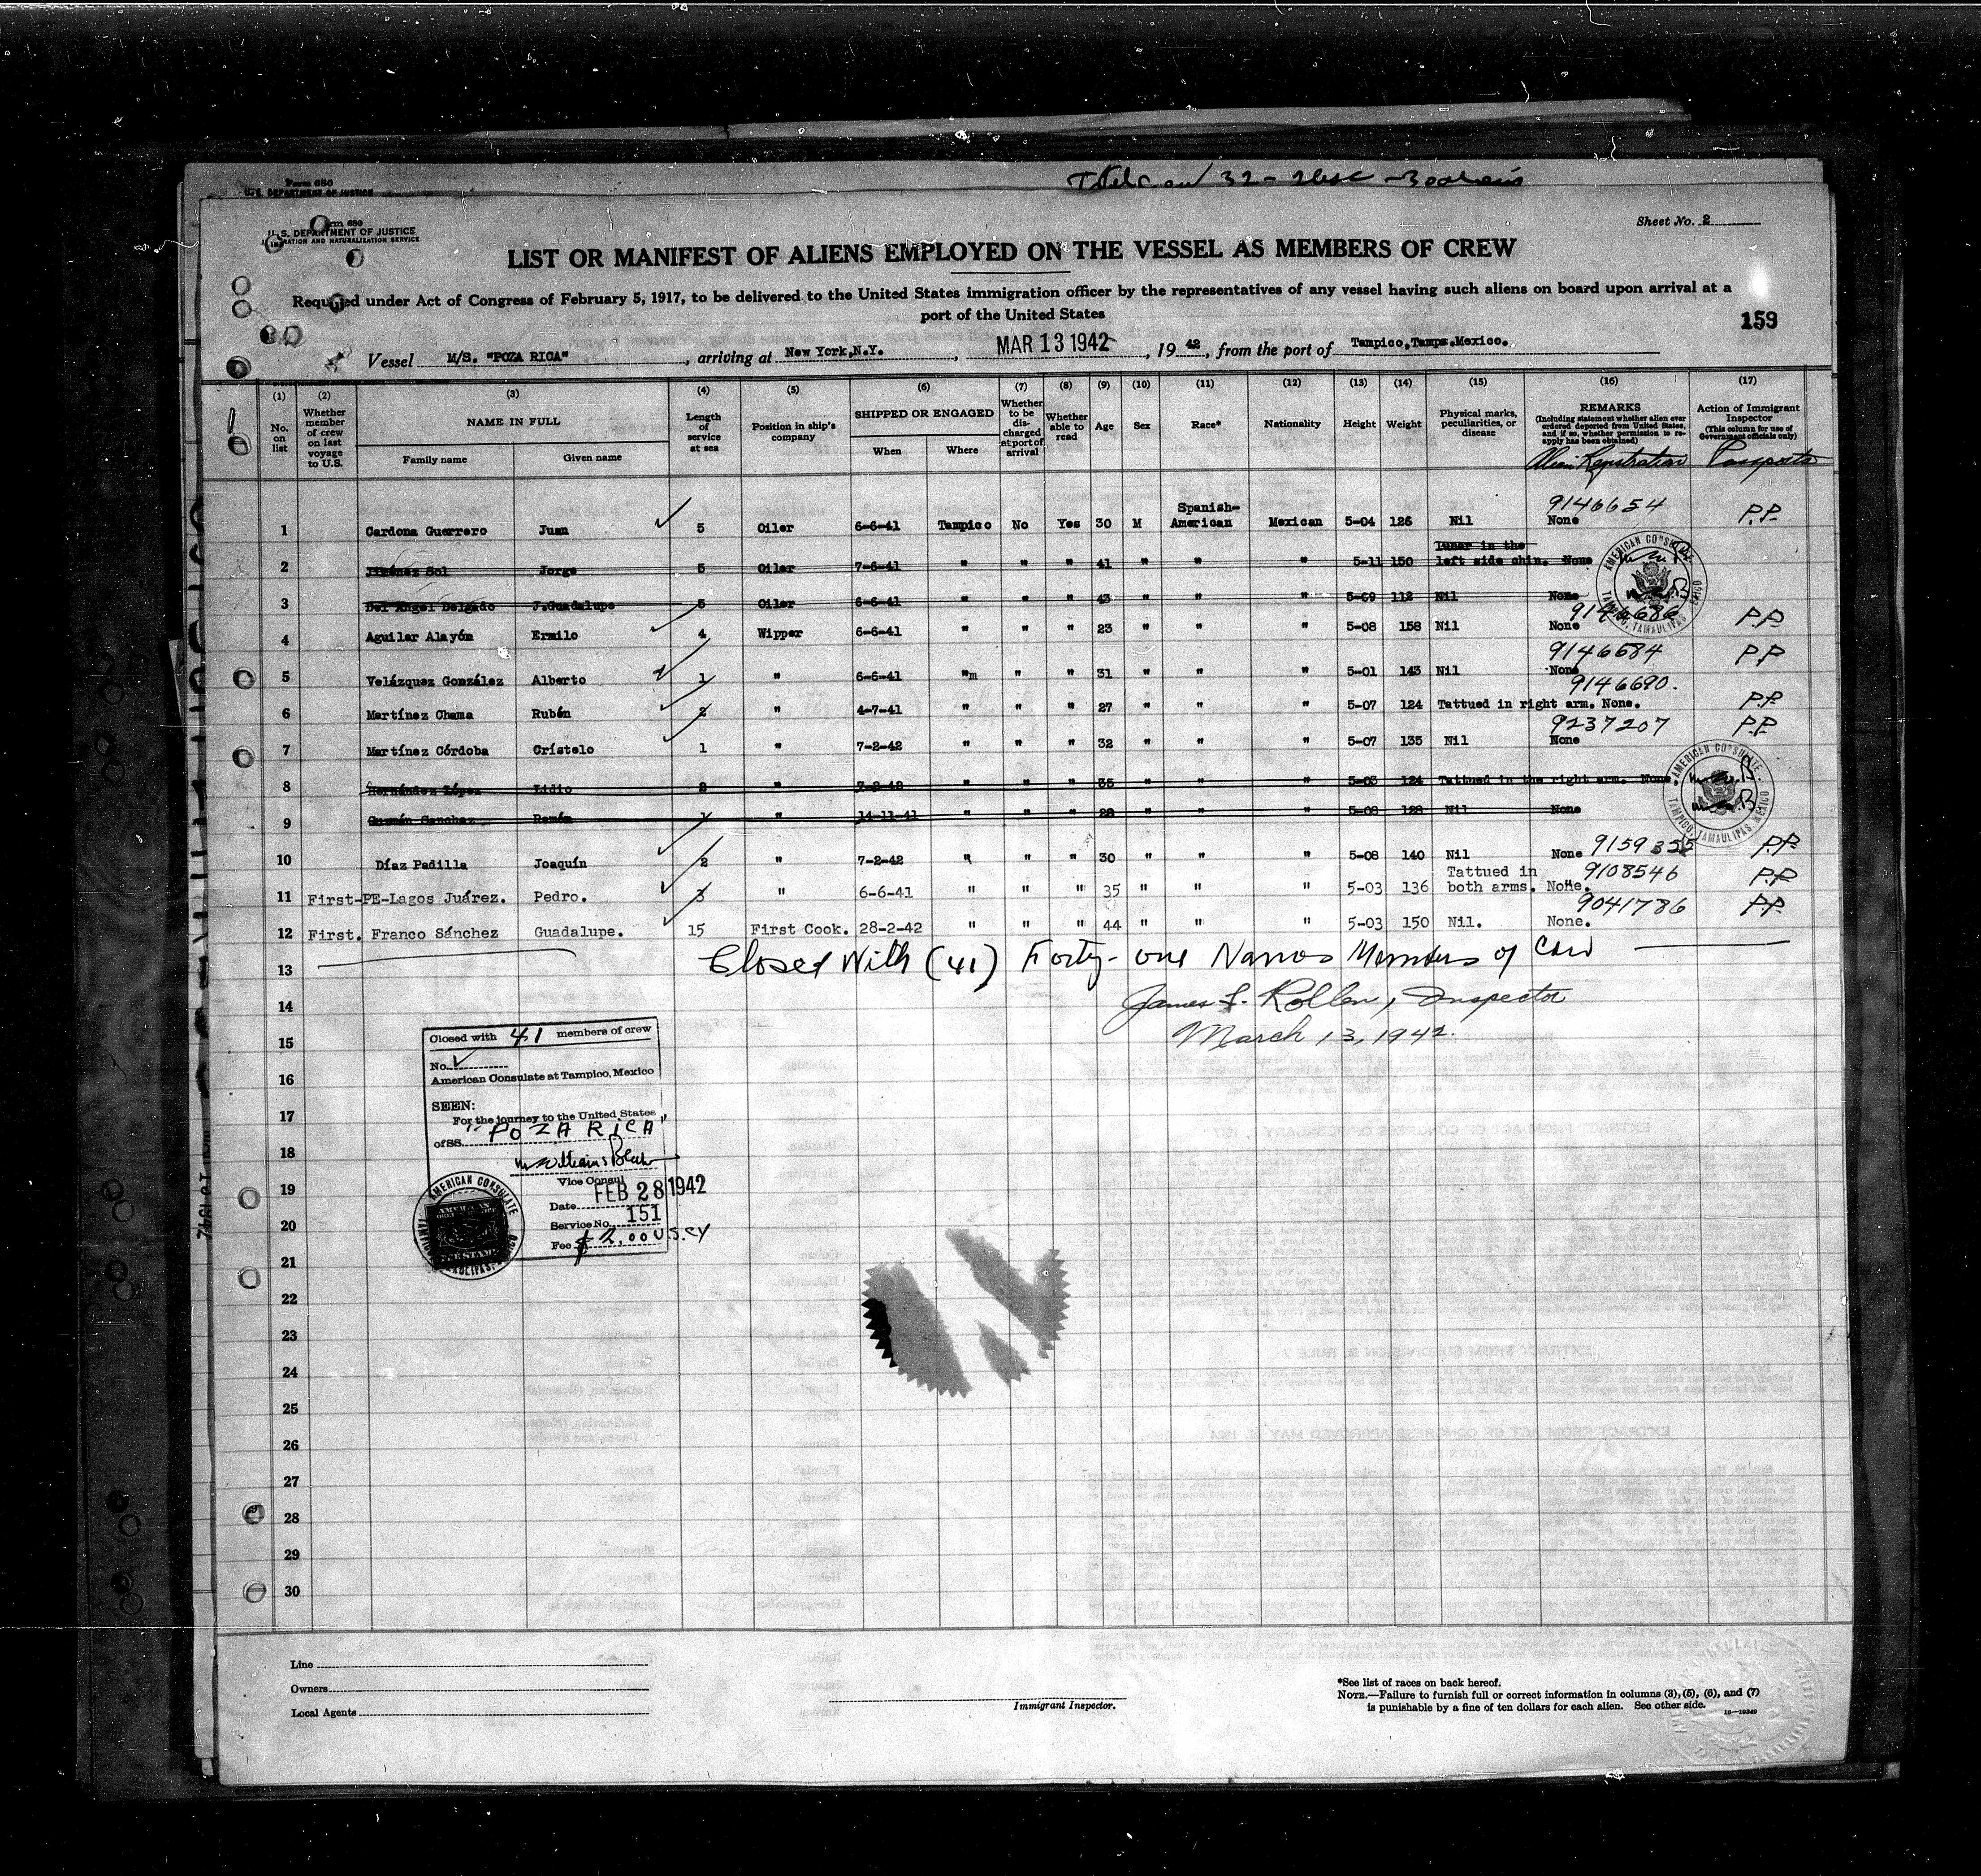 Form 680
U.S. DEPARTMENT OF JUSTICE
Form 680
U. S. DEPARTMENT OF JUSTICE
IMMIGRATION AND NATURALIZATION SERVICE
Sheet No. 2
LIST OR MANIFEST OF ALIENS EMPLOYED ON THE VESSEL AS MEMBERS OF CREW
Required under Act of Congress of February 5, 1917, to be delivered to the United States immigration officer by the representatives of any vessel having such aliens on board upon arrival at a
port of the United States
159
Vessel M/S. "POZA RICA", arriving at New York,N.Y., MAR 13 1942, 19 42, from the port of Tampico,Tamps.Mexico.
(1) (2) (3) (4) (5) (6) (7) (8) (9) (10) (11) (12) (13) (14) (15) (16) (17)
No. on list
Whether member of crew on last voyage to U.S.
NAME IN FULL
Family name Given name
Length of service at sea
Position in ship's company
SHIPPED OR ENGAGED
When Where
Whether to be discharged at port of arrival
Whether able to read
Age Sex Race* Nationality Height Weight
Physical marks, peculiarities, or disease
REMARKS
(Including statement whether alien ever ordered deported from United States, and if so, whether permission to reapply has been obtained)
Action of Immigrant Inspector
(This column for use of Government officials only)
Alien Registration Passports
1 Cardona Guerrero Juan 5 Oiler 6-6-41 Tampico No Yes 30 M Spanish-American Mexican 5-04 126 Nil None 9146654 P.P.
2 Jiménez Sol Jorge 5 Oiler 7-6-41 " " " 41 " " " 5-11 150 left side chin. None
3 Del Angel Delgado J.Guadalupe 5 Oiler 6-6-41 " " " 43 " " " 5-09 112 Nil None
4 Aguilar Alayón Ermilo 4 Wipper 6-6-41 " " " 23 " " " 5-08 158 Nil None 9146686 P.P.
5 Velázquez González Alberto 1 " 6-6-41 "m " " 31 " " " 5-01 143 Nil None 9146684 P.P.
6 Martínez Chama Rubén 2 " 4-7-41 " " " 27 " " " 5-07 124 Tattued in right arm. None. 9146690. P.P.
7 Martínez Córdoba Crístelo 1 " 7-2-42 " " " 32 " " " 5-07 135 Nil None 9237207 P.P.
8 Hernández López Lidio 2 " 7-2-42 " " " 35 " " " 5-03 124 Tattued in the right arm. None.
9 Guzmán Sanchez Ramón 1 " 14-11-41 " " " 28 " " " 5-08 128 Nil None
10 Díaz Padilla Joaquín 2 " 7-2-42 " " " 30 " " " 5-08 140 Nil None P.P.
11 First-PE-Lagos Juárez. Pedro. 3 " 6-6-41 " " " 35 " " " 5-03 136 Tattued in both arms. None. 9108546 P.P.
12 First. Franco Sánchez Guadalupe. 15 First Cook. 28-2-42 " " " 44 " " " 5-03 150 Nil. None. 9041786 P.P.
AMERICAN CONSULATE TAMPICO, TAMAULIPAS, MEXICO
AMERICAN CONSULATE TAMPICO, TAMAULIPAS, MEXICO
13 Closed With (41) Forty-one Names Members of Crew
14 James F. Rollen, Inspector
15 March 13, 1942.
16
17
18
19
20
21
22
23
24
25
26
27
28
29
30
Closed with 41 members of crew
No.
American Consulate at Tampico, Mexico
SEEN:
For the journey to the United States
of SS. "POZA RICA"
Vice Consul
Date FEB 28 1942
Service No. 151
Fee $ 2.00 U.S.CY
AMERICAN CONSULATE TAMPICO, TAMAULIPAS, MEXICO
Line
Owners
Local Agents
Immigrant Inspector.
*See list of races on back hereof.
NOTE.—Failure to furnish full or correct information in columns (3), (5), (6), and (7)
is punishable by a fine of ten dollars for each alien. See other side.
16—19349